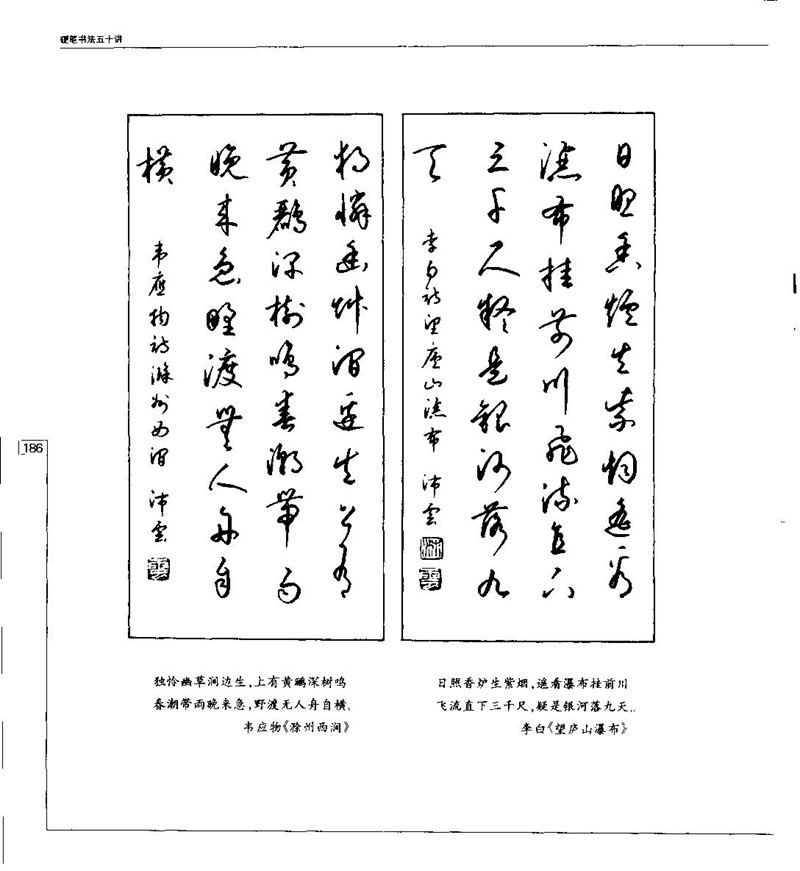 硬笔书法五十讲
日照香炉生紫烟遥看
瀑布挂前川飞流直下
三千尺疑是银河落九
天
李白诗望庐山瀑布 沛雲
独怜幽草涧边生上有
黄鹂深树鸣春潮带雨
晚来急野渡無人舟自
横
韦應物诗滁州西涧 沛雲
186
独怜幽草涧边生,上有黄鹂深树鸣
春潮带雨晚来急,野渡无人舟自横、
韦应物《滁州西涧》
日照香炉生紫烟,遥看瀑布挂前川
飞流直下三千尺,疑是银河落九天..
李白《望庐山瀑布》